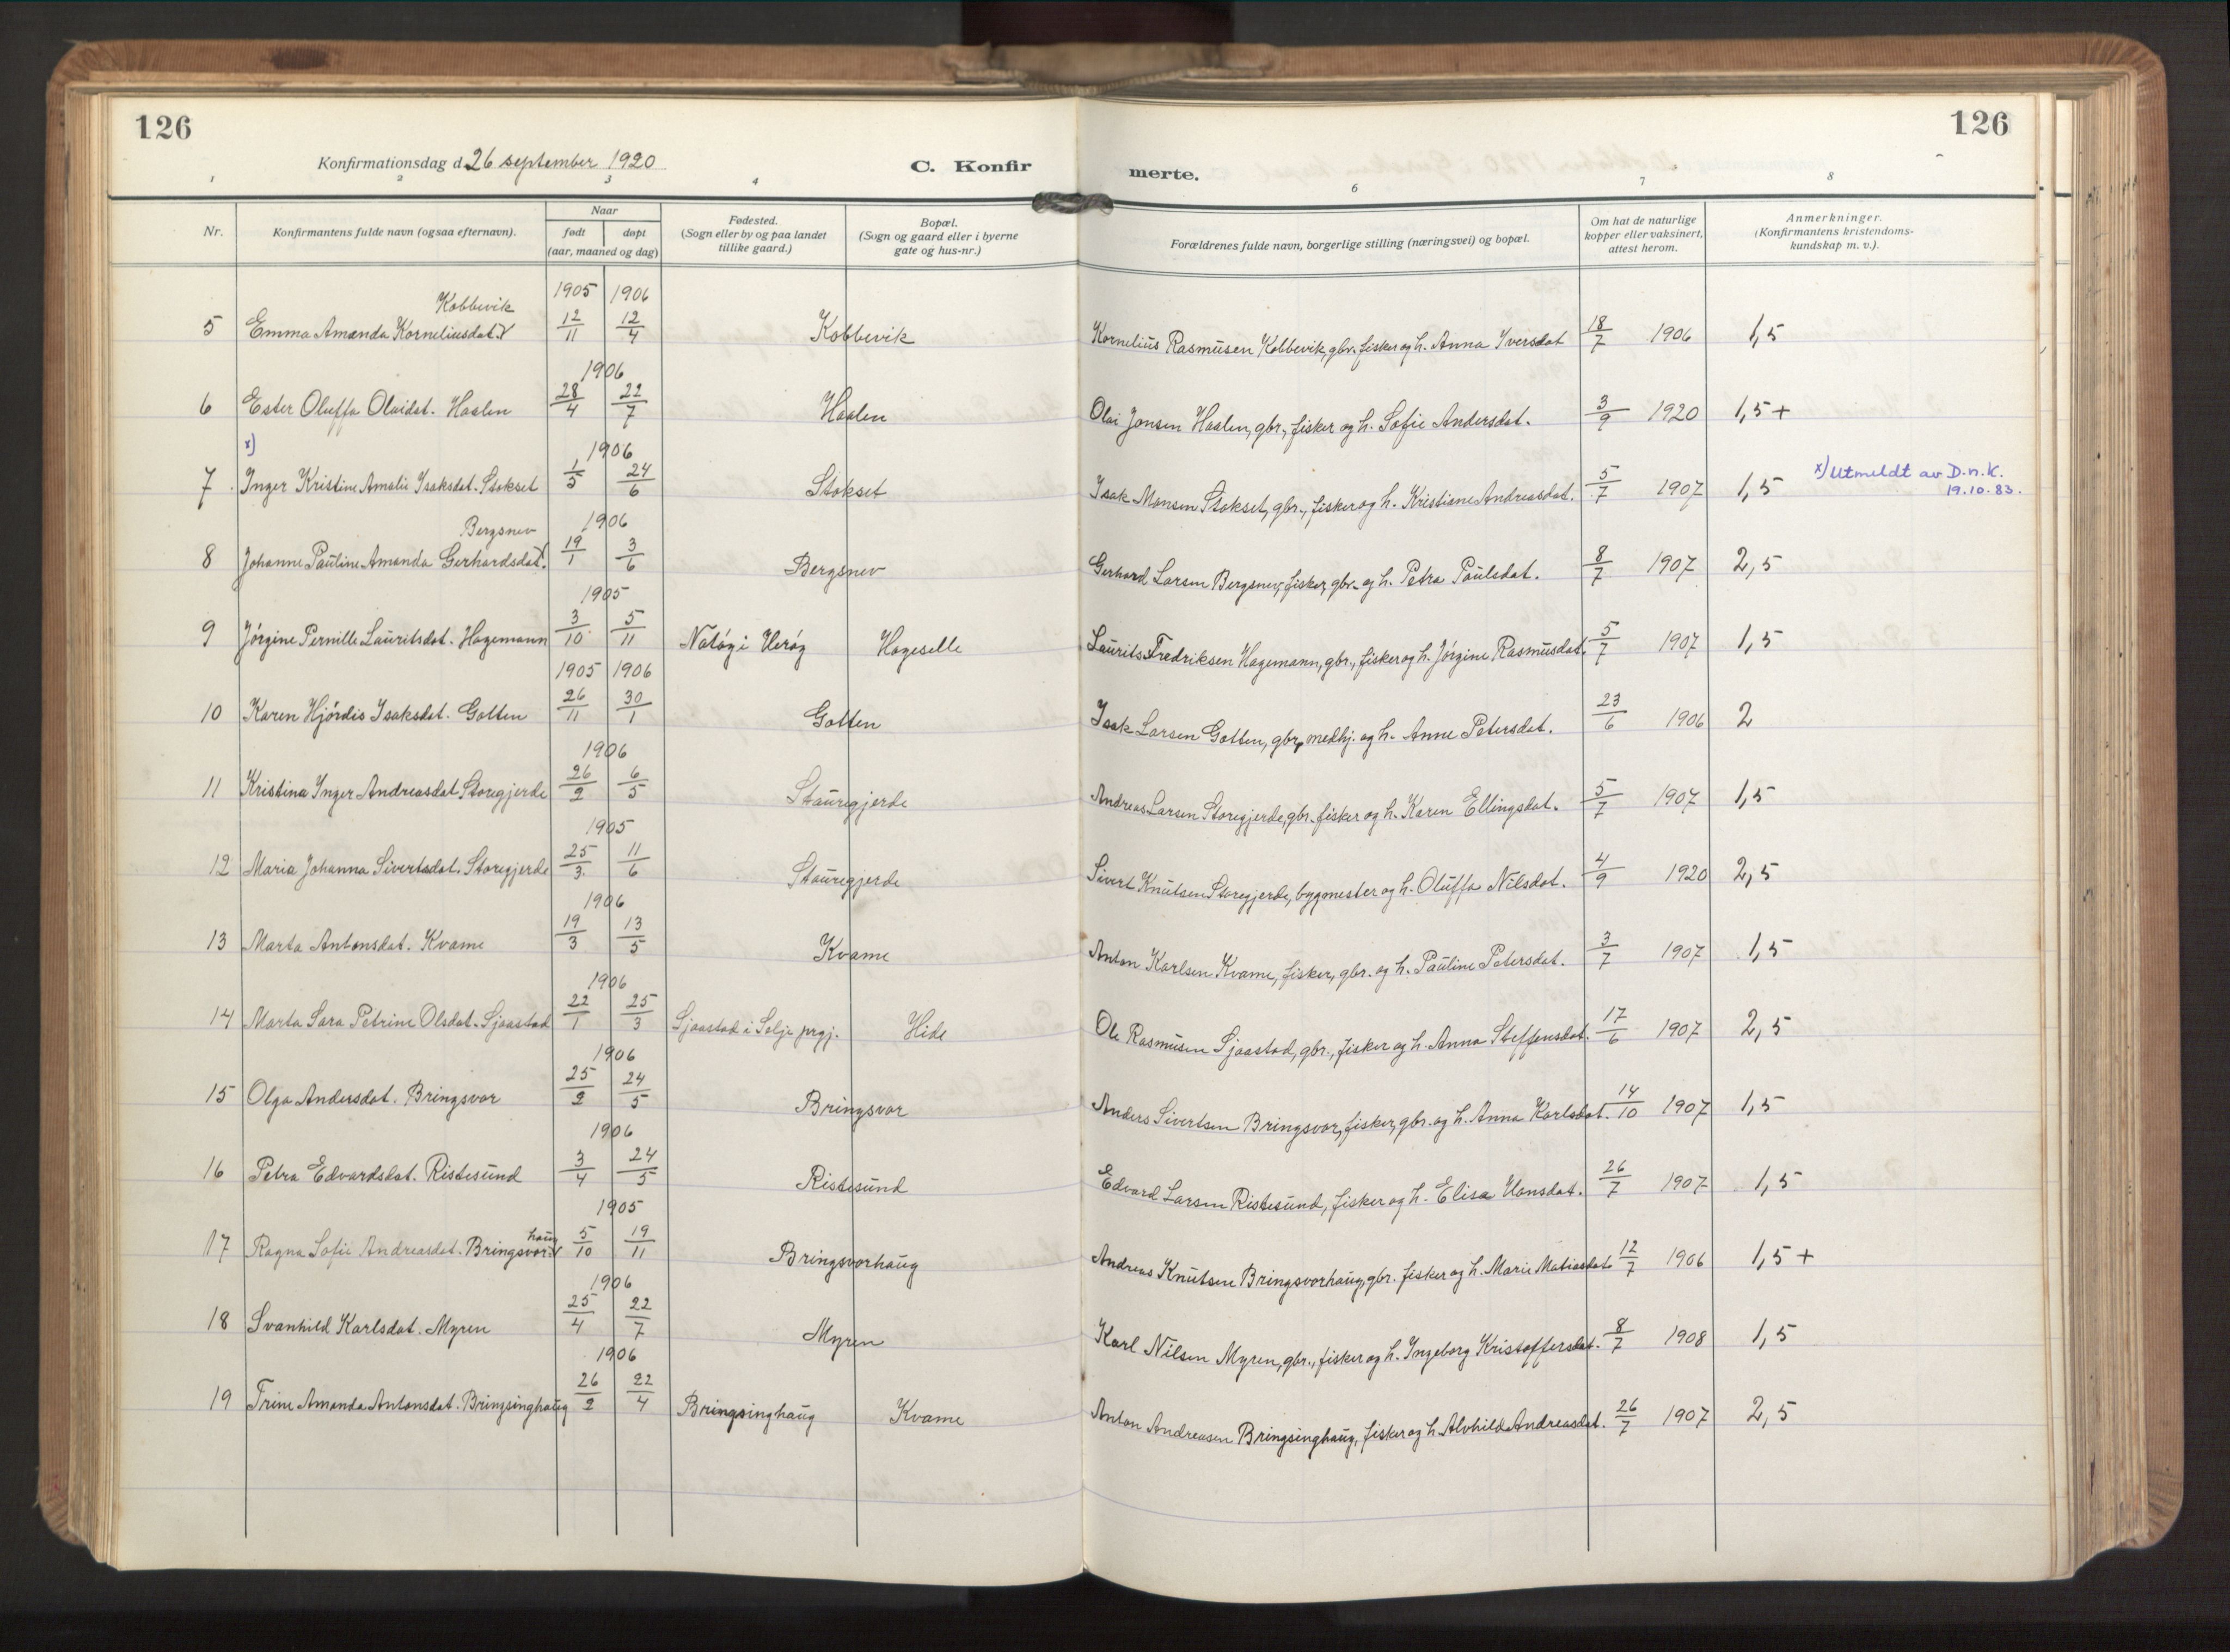 126
126
Konfirmationsdag d. 26 september 1920
C. Konfirmerte.
1 2 3 4 6 7 8
Nr.
Konfirmantens fulde navn (ogsaa efternavn).
Naar
født døpt
(aar, maaned og dag)
Fødested.
(Sogn eller by og paa landet
tillike gaard.)
Bopæl.
(Sogn og gaard eller i byerne
gate og hus-nr.)
Forældrenes fulde navn, borgerlige stilling (næringsvei) og bopæl.
Om hat de naturlige
kopper eller vaksinert,
attest herom.
Anmerkninger.
(Konfirmantens kristendoms-
kundskap m. v.).
Kobbevik 1905 1906
5 Emma Amanda Korneliusdat. 12/11 12/4 Kobbevik Kornelius Rasmusen Kobbevik, gbr. fisker og h. Anna Iversdat 18/7 1906 1,5
1906
6 Ester Oluffa Olaidat. Haslen 28/4 22/7 Haslen Olai Jonsen Haslen, gbr., fisker og h. Sofie Andersdat. 3/9 1920 1,5+
x) 1906
7 Inger Kristine Amalie Isaksdat. Stokset 1/5 24/6 Stokset Isak Monsen Stokset, gbr., fisker og h. Kristiane Andreasdat. 5/7 1907 1,5 x) Utmeldt av D.n.K.
19.10.83.
Bergsnev 1906
8 Johanne Pauline Amanda Gerhardsdat. 19/1 3/6 Bergsnev Gerhard Larsen Bergsnev, fisker, gbr. og h. Petra Paulsdat. 8/7 1907 2,5
1905
9 Jørgine Pernille Lauritsdat. Hagemann 3/10 5/11 Notøy i Herøy Hageselle Laurits Fredriksen Hagemann, gbr., fisker og h. Jørgine Rasmusdat. 5/7 1907 1,5
1905 1906
10 Karen Hjørdis Isaksdat. Gotten 26/11 30/1 Gotten Isak Larsen Gotten, gbr., medhj. og h. Anne Petersdat. 23/6 1906 2
1906
11 Kristina Inger Andreasdat. Storegjerde 26/2 6/5 Stauregjerde Andreas Larsen Storegjerde, gbr. fisker og h. Karen Ellingsdat. 5/7 1907 1,5
1905
12 Maria Johanna Sivertsdat. Storegjerde 25/3 11/6 Stauregjerde Sivert Knutsen Storegjerde, bygmester og h. Oluffa Nilsdat. 4/9 1920 2,5
1906
13 Marta Antonsdat. Kvame 19/3 13/5 Kvame Anton Karlsen Kvame, fisker, gbr. og h. Pauline Petersdat. 3/7 1907 1,5
1906
14 Marta Sara Petrine Olsdat. Sjaastad 22/1 25/3 Sjaastad i Selje prgj. Hide Ole Rasmusen Sjaastad, gbr., fisker og h. Anna Steffensdat. 17/6 1907 2,5
1906
15 Olga Andersdat. Bringsvor 25/2 24/5 Bringsvor Anders Sivertsen Bringsvor, fisker, gbr. og h. Anna Karlsdat. 14/10 1907 1,5
1906
16 Petra Edvardsdat. Ristesund 3/4 24/5 Ristesund Edvard Larsen Ristesund, fisker og h. Elisa Hansdat. 26/7 1907 1,5
1905
17 Ragna Sofie Andreasdat. Bringsvorhaug 5/10 19/11 Bringsvorhaug Andreas Knutsen Bringsvorhaug, gbr. fisker og h. Marie Matiasdat. 12/7 1906 1,5+
1906
18 Svanhild Karlsdat. Myren 25/4 22/7 Myren Karl Nilsen Myren, gbr., fisker og h. Ingeborg Kristoffersdat. 8/7 1908 1,5
1906
19 Trine Amanda Antonsdat. Bringsinghaug 26/2 22/4 Bringsinghaug Kvame Anton Andreasen Bringsinghaug, fisker og h. Alvhilde Andreasdat. 26/7 1907 2,5